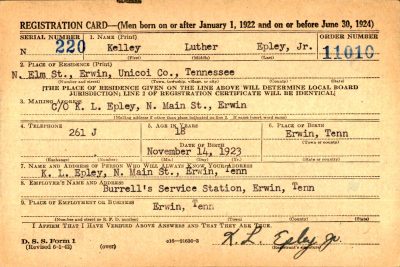 REGISTRATION CARD—(Men born on or after January 1, 1922 and on or before June 30, 1924)
SERIAL NUMBER 1. NAME (Print) ORDER NUMBER
N 220 Kelley Luther Epley, Jr. 11010
(First) (Middle) (Last)
2. PLACE OF RESIDENCE (Print)
N. Elm St., Erwin, Unicoi Co., Tennessee
(Number and street) (Town, township, village, or city) (County) (State)
[THE PLACE OF RESIDENCE GIVEN ON THE LINE ABOVE WILL DETERMINE LOCAL BOARD
JURISDICTION; LINE 2 OF REGISTRATION CERTIFICATE WILL BE IDENTICAL]
3. MAILING ADDRESS
C/O K. L. Epley, N. Main St., Erwin
[Mailing address if other than place indicated on line 2. If same insert word same]
4. TELEPHONE 5. AGE IN YEARS 6. PLACE OF BIRTH
261 J 18 Erwin, Tenn
DATE OF BIRTH
November 14, 1923
(Mo.) (Day) (Yr.)
7. NAME AND ADDRESS OF PERSON WHO WILL ALWAYS KNOW YOUR ADDRESS
K. L. Epley, N. Main St., Erwin, Tenn
8. EMPLOYER'S NAME AND ADDRESS
Burrell's Service Station, Erwin, Tenn
9. PLACE OF EMPLOYMENT OR BUSINESS
Erwin, Tenn
(Number and street or R. F. D. number) (Town) (County) (State)
I AFFIRM THAT I HAVE VERIFIED ABOVE ANSWERS AND THAT THEY ARE TRUE.
D. S. S. Form 1
(Revised 6-1-42) (over) K. L. Epley Jr.